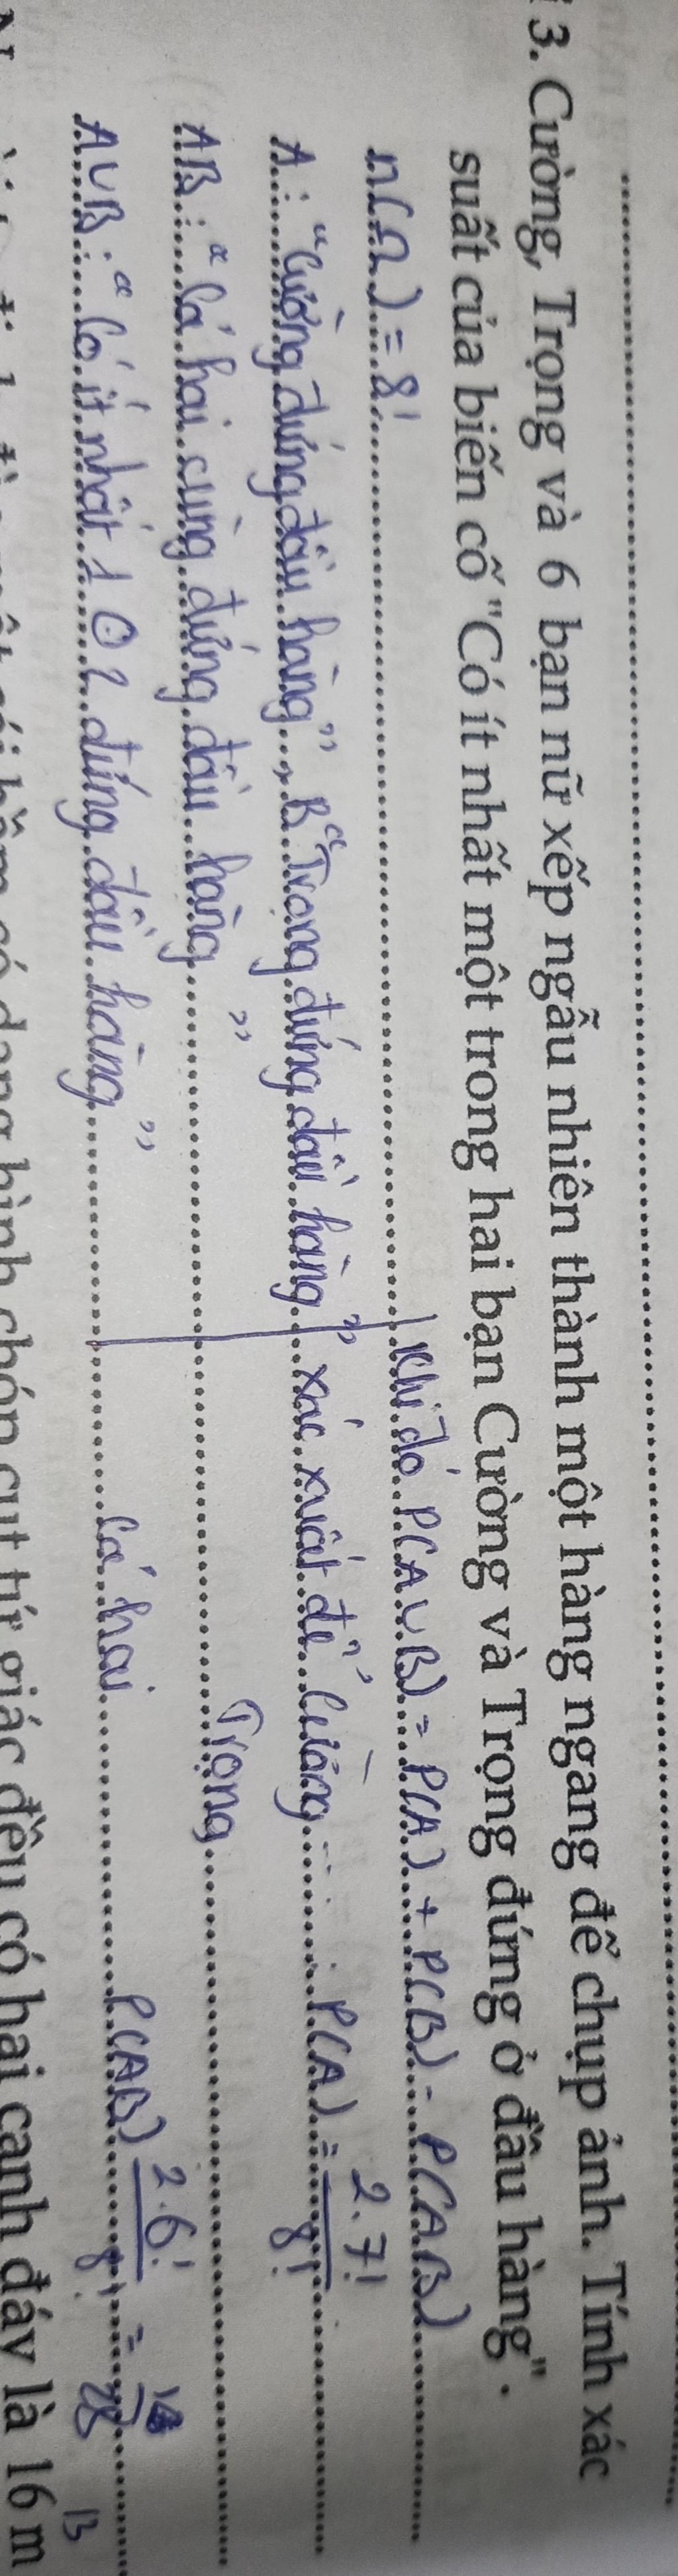 3. Cường, Trọng và 6 bạn nữ xếp ngẫu nhiên thành một hàng ngang để chụp ảnh. Tính xác
suất của biến cố "Có ít nhất một trong hai bạn Cường và Trọng đứng ở đầu hàng".
n(Ω) = 8! Khi đó P(A∪B) = P(A) + P(B) - P(AB)
A: "Cường đứng đầu hàng", B "Trọng đứng đầu hàng" xác xuất để Cường P(A) = 2.7!/8!
AB: "Cả hai cùng đứng đầu hàng" Trọng
A∪B: "Có ít nhất 1 đứng đầu hàng" Cả hai P(AB) 2.6!/8! = 1/28
13
có hai cạnh đáy là 16 m